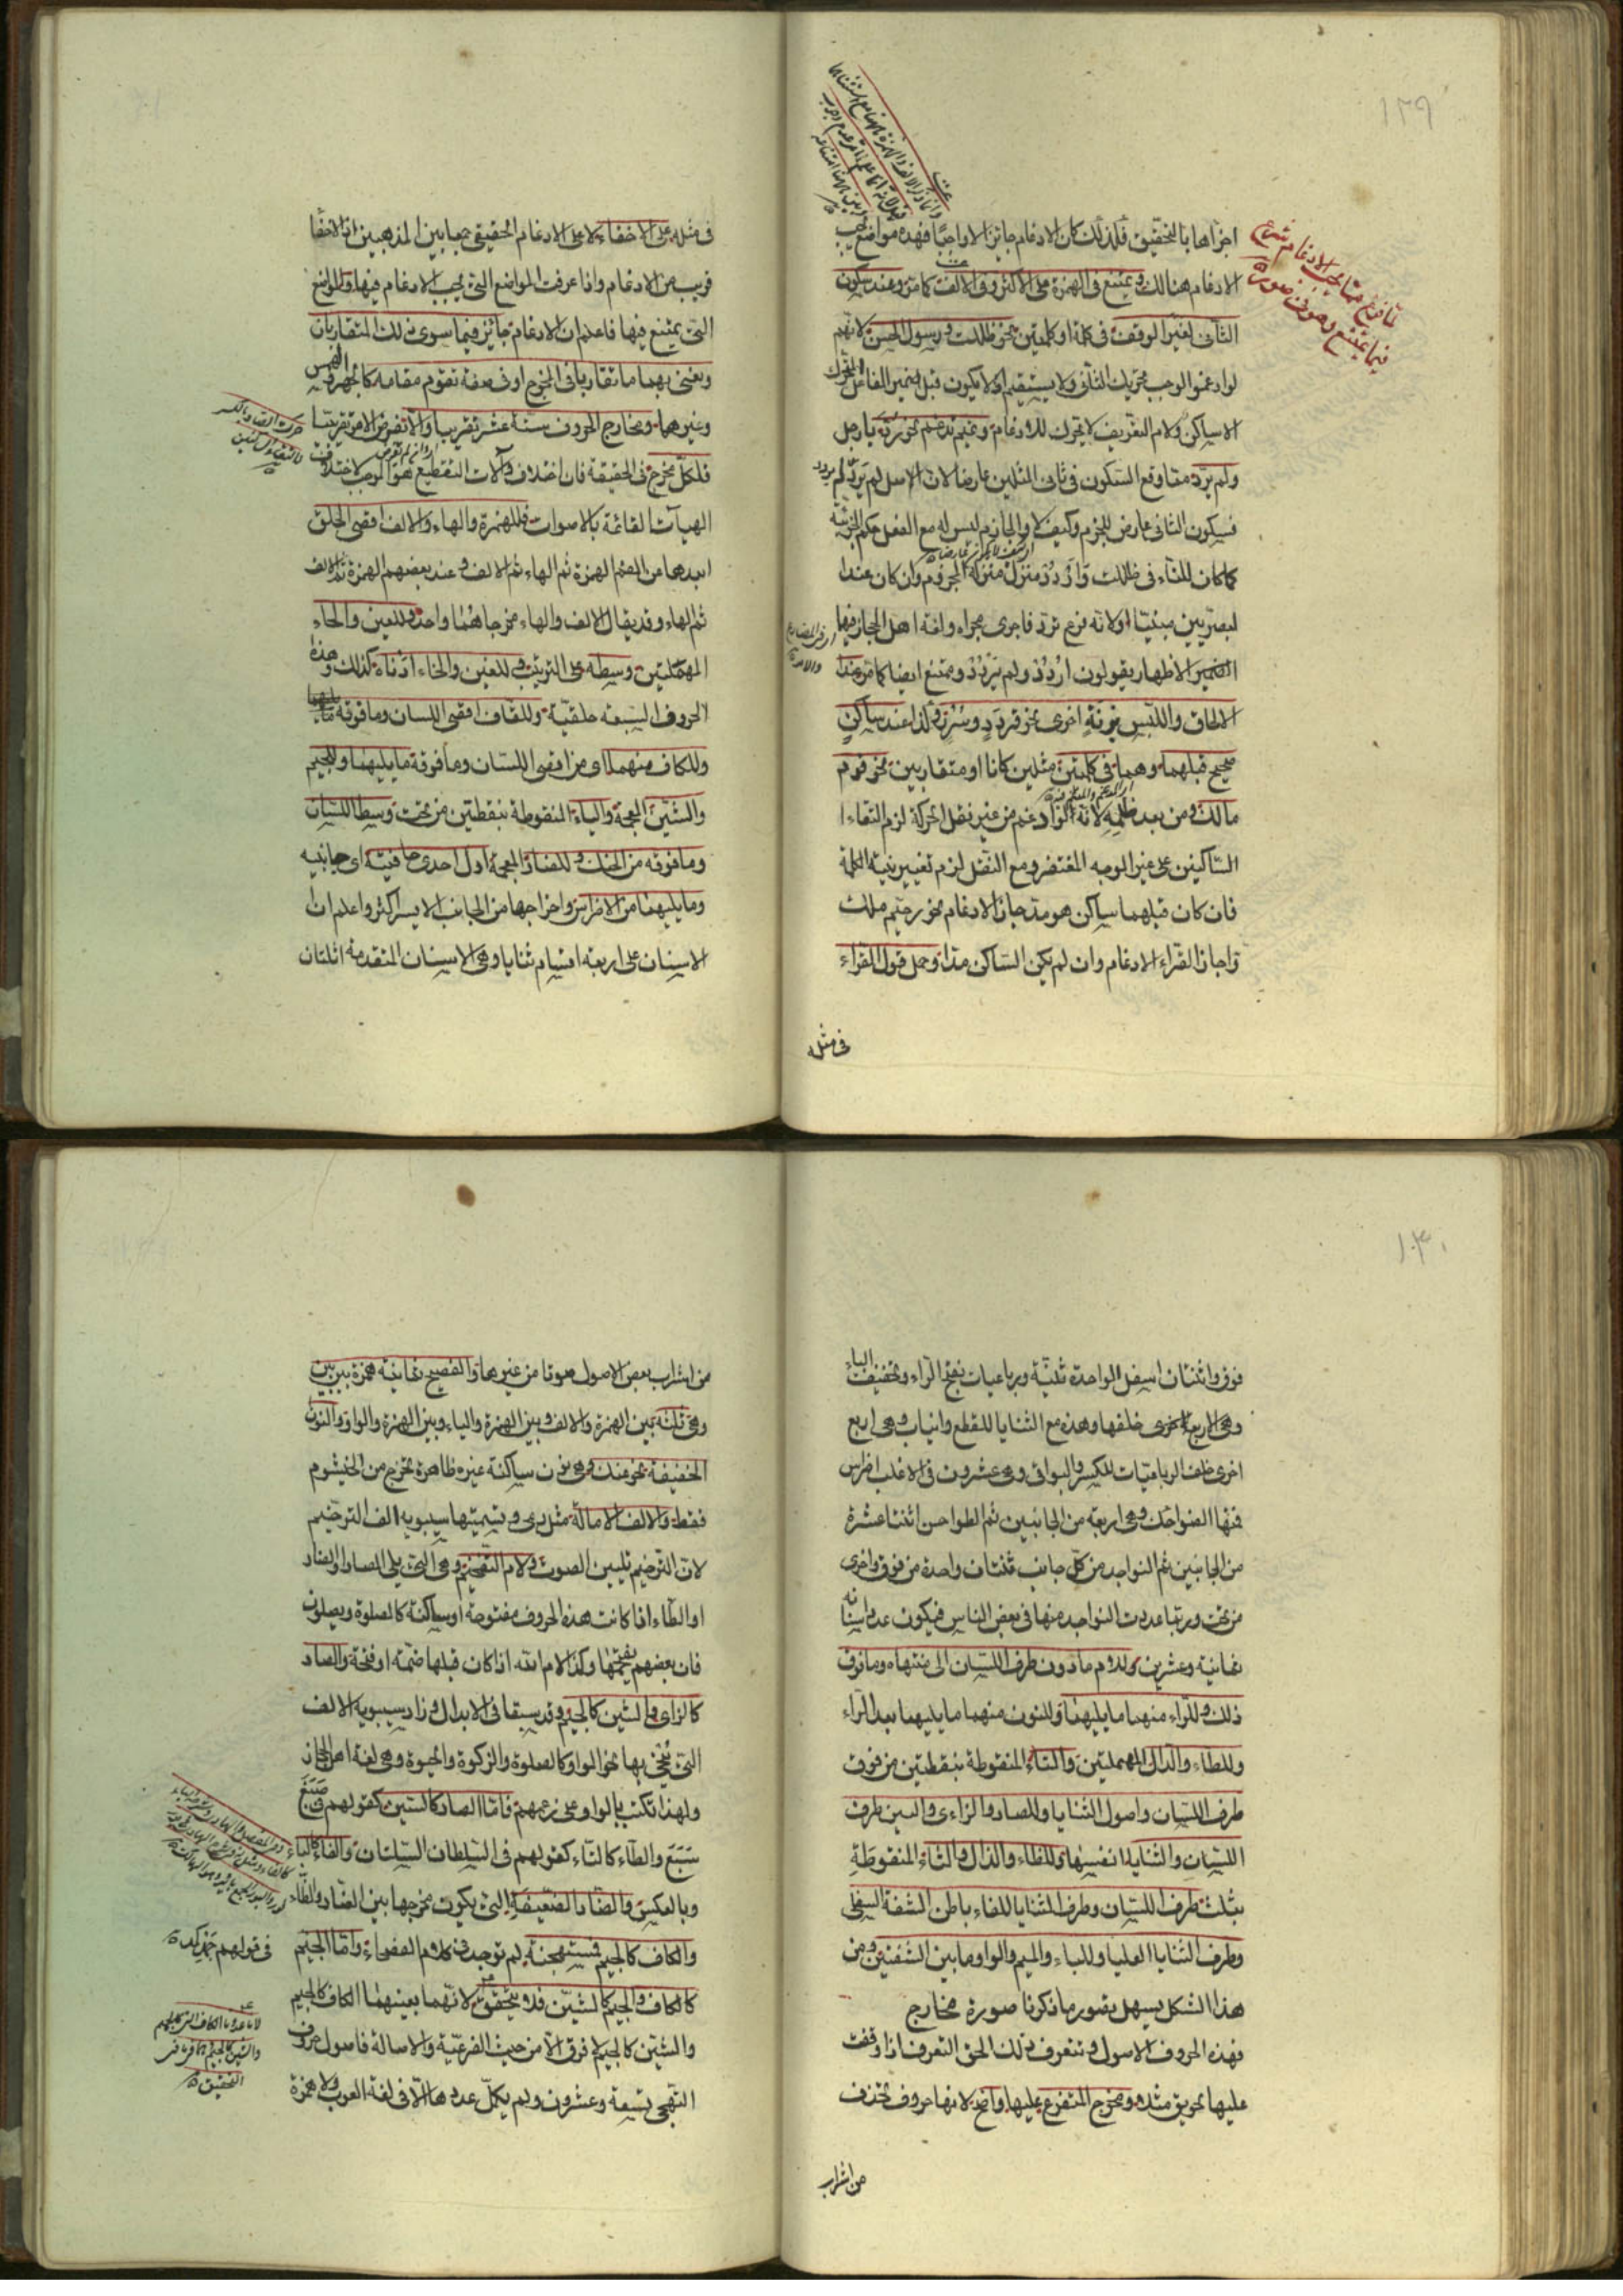 ١٢٩
اجزاها بالتحقيق فلذلك كان الادغام جائزا لا واجبا فهذه مواضع يجب
الادغام هنالك ويمتنع فى الهمزة على الاكثر وفى الالف كما مر وعند سكون
الثانى لغير الوقف فى كلمة او كلمتين نحو ظللت ورسول الحسن لانهم
لو ادغموا لوجب تحريك الثانى ولا يستقيم اذ لا يكون قبل ضمير الفاعل المتحرك
الا ساكن ولام التعريف لا تحرك للادغام وتميم تدغم نحو رد يا رجل
ولم يرد مما وقع السكون فى ثانى المثلين عارضا لان الاصل لم يردد
فسكون الثانى عارض للجزم وكيف لا والجازم ليس له مع الفعل حكم الجزئية
كما كان للتاء فى ظللت واردد منزل منزلة المجزوم وان كان عند ا
لبصريين مبنيا ولانه فرع ترد فاجرى مجراه ولغة اهل الحجاز فيها
الاظهار يقولون اردد ولم يردد ويمتنع ايضا كما مر عند
الالحاق واللبس بزنة اخرى نحو قردد وسرر وكذا عند ساكن
صحيح قبلهما وهما فى كلمتين مثلين كانا او متقاربين نحو قوم
مالك ومن بعد ظلمه لانه لو ادغم من غير نقل الحركة لزم التقاء ا
الساكنين على غير الوجه المغتفر ومع النقل لزم تغيير بنية الكلمة
فان كان قبلهما ساكن هو مدة جاز الادغام نحو رحيم ملك
واجاز القراء الادغام وان لم يكن الساكن مدا وحمل قول القراء
فى مثله
لما فرغ مما يجب الادغام شرع
فيما يمتنع وهو فى صور
فى مثله على الاخفاء لا على الادغام الحقيقى جمعا بين المذهبين اذ الاخفا
قريب من الادغام واذا عرفت المواضع التى يجب الادغام فيها والمواضع
التى يمتنع فيها فاعلم ان الادغام جائز فيما سوى ذلك المتقاربان
ونعنى بهما ما تقاربا فى المخرج او فى صفة تقوم مقامه كالجهر والهمس
وغيرهما ومخارج الحروف ستة عشر تقريبا والا
فلكل مخرج فى الحقيقة فان اختلاف آلات التقطيع هو الموجب لاختلاف
الهيآت القائمة بالاصوات فللهمزة والهاء والالف اقصى الحلق
ابعدها من الفم الهمزة ثم الهاء ثم الالف وعند بعضهم الهمزة ثم الالف
ثم الهاء وقد يقال الالف والهاء مخرجاهما واحد وللعين والحاء
المهملتين وسطه على الترتيب وللغين والخاء ادناه كذلك وهذه
الحروف السبعة حلقية وللقاف اقصى اللسان وما فوقه مما يليهما
وللكاف منهما اى من اقصى اللسان وما فوقه ما يليهما وللجيم
والشين المعجمة والياء المنقوطة بنقطتين من تحت وسط اللسان
وما فوقه من الحنك وللضاد المعجمة اول احدى حافتيه اى جانبيه
وما يليهما من الاضراس واخراجها من الجانب الايسر اكثر واعلم ان
الاسنان على اربعة اقسام ثنايا وهى الاسنان المتقدمة اثنتان
١٣٠
فوق واثنتان اسفل الواحدة ثنية ورباعيات بفتح الراء وتخفيف الياء
وهى الاربعة الاخرى خلفها وهذه مع الثنايا للقطع وانياب وهى اربع
اخرى خلف الرباعيات للكسر والبواقى وهى عشرون فى الاغلب اضراس
فمنها الضواحك وهى اربعة من الجانبين ثم الطواحن اثنتا عشرة
من الجانبين ثم النواجد من كل جانب ثنتان واحدة من فوق واخرى
من تحت وربما عدمت النواجد منها فى بعض الناس فيكون عدد اسنانه
ثمانية وعشرين وللام ما دون طرف اللسان الى منتهاه وما فوق
ذلك وللراء منهما ما يليهما وللنون منهما ما يليهما بعد الراء
وللطاء والدال المهملتين والتاء المنقوطة بنقطتين من فوق
طرف اللسان واصول الثنايا وللصاد والزاى والسين طرف
اللسان والثنايا انفسها وللظاء والذال والثاء المنقوطة
بثلث طرف اللسان وطرف الثنايا للفاء باطن الشفة السفلى
وطرف الثنايا العليا وللباء والميم والواو ما بين الشفتين ومن
هذا الشكل يسهل تصور ما ذكرنا صورة مخارج
فهذه الحروف الاصول وتتعرف ذلك الحق التعرف اذا وقفت
عليها نحو يق مثلا ومخرج المتفرع عليها واضح لانها حروف تحدث
من اشراب
من اشراب بعض الاصول صوتا من غيرها والفصيح ثمانية همزة بين بين
وهى ثلثة بين الهمزة والالف وبين الهمزة والياء وبين الهمزة والواو والنون
الخفيفة نحو عنك وهى نون ساكنة غير ظاهرة تخرج من الخيشوم
فقط والالف الامالة مثل رمى وتسميتها سيبويه الف الترخيم
لان الترخيم تليين الصوت ولام التفخيم وهى التى يلى الصاد او الضاد
او الطاء اذا كانت هذه الحروف مفتوحة او ساكنة كالصلوة ويصلون
فان بعضهم يفخمها وكذا لام الله اذا كان قبلها ضمة او فتحة والصاد
كالزاى والشين كالجيم وقد سبقا فى الابدال وزاد سيبويه الالف
التى ينحى بها نحو الواو كالصلوة والزكوة والحيوة وهى لغة اهل الحجاز
ولهذا تكتب بالواو على زعمهم فاما الصاد كالسين كقولهم فى صبغ
سبغ والطاء كالتاء كقولهم فى السلطان السلتان والفاء كالباء
وبالعكس والضاد الضعيفة التى يكون مخرجها بين الضاد والظاء
والكاف كالجيم فمستهجنة لم توجد فى كلام الفصحاء واما الجيم
كالكاف والجيم كالشين فلا يتحقق لانهما بعينهما الكاف كالجيم
والشين كالجيم لا فرق الا من حيث الفرعية والاصالة فاصول حروف
التهجى تسعة وعشرون ولم يكمل عددها الا فى لغة العرب ولا همزة